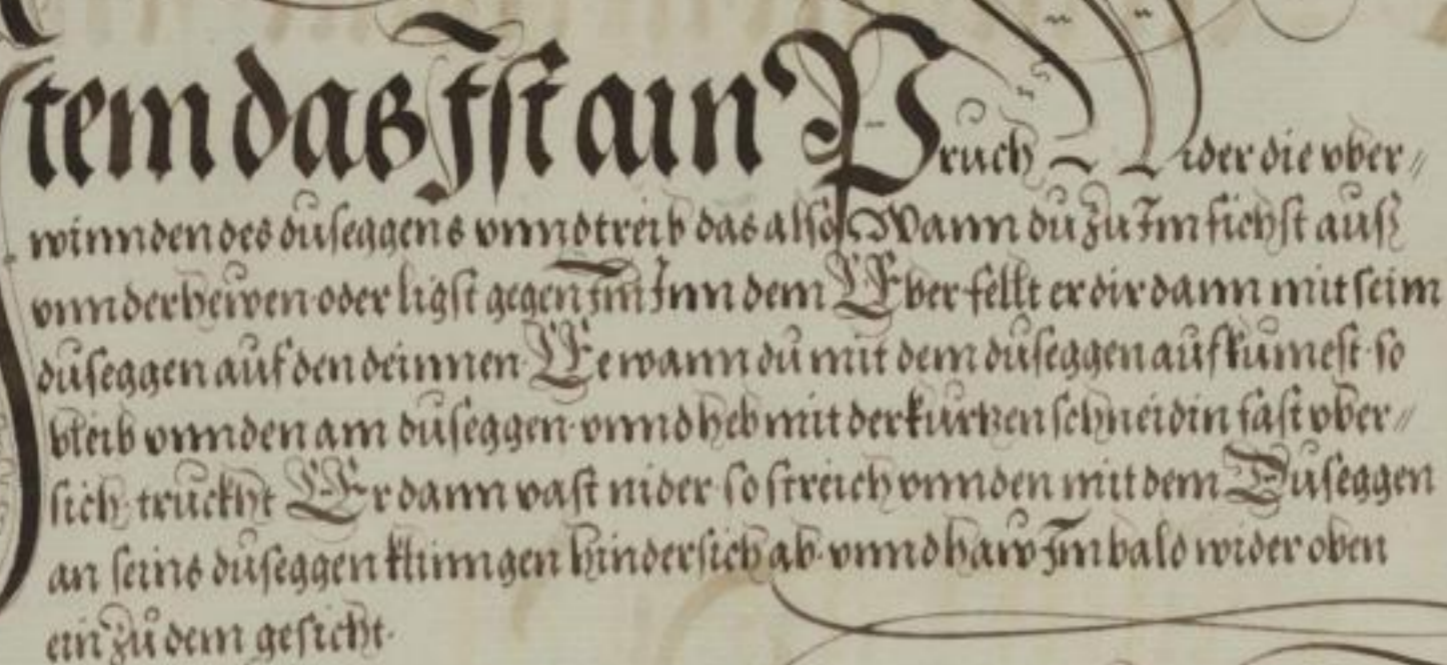 Item das Ist ain Pruch Wider die vber⸗
winnden des duseggens vnnd treib das also Wann du zu Im fichst auß
vnnderhewen oder ligst gegen Im Inn dem Eber fellt er dir dann mit seim
duseggen auf den deinnen Ee wann du mit dem duseggen auf kumest so
bleib vnnden am duseggen vnnd heb mit der kurtzen schneid in fast vber⸗
sich truckht Er dann vast nider so streich vnnden mit dem Duseggen
an seins duseggen klinngen hindersich ab vnnd haw Im bald wider oben
ein zu dem gesicht